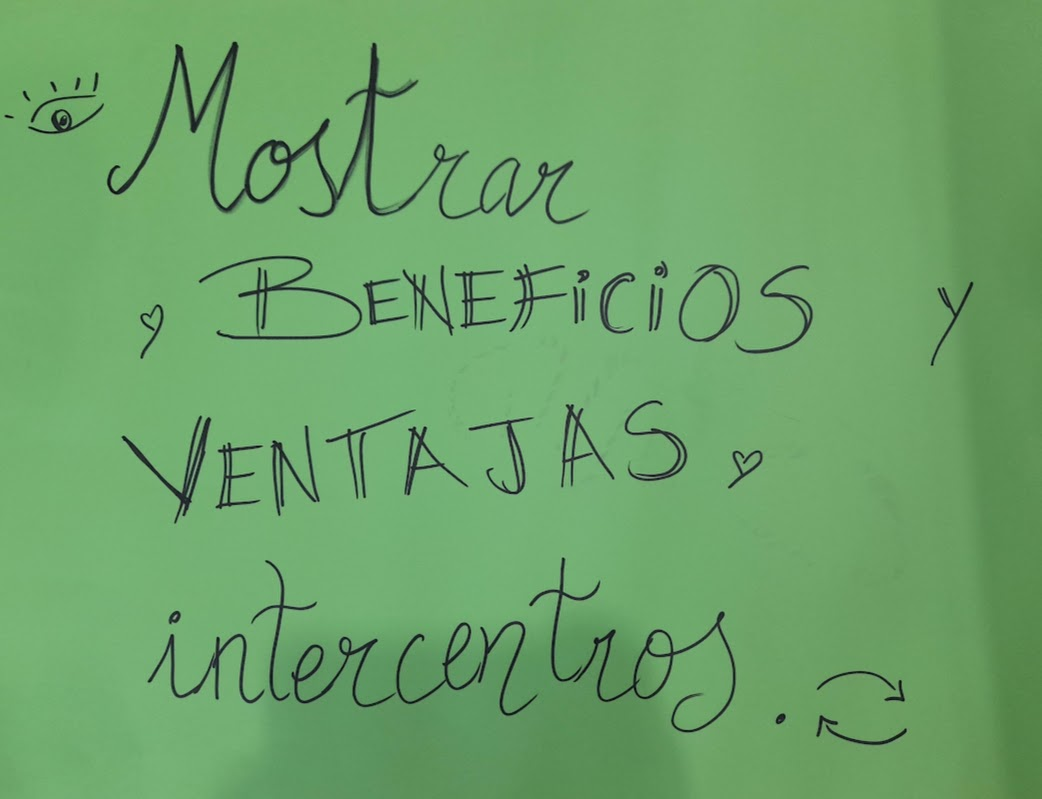 Mostrar
BENEFiCiOS y
VENTAJAS
intercentros.